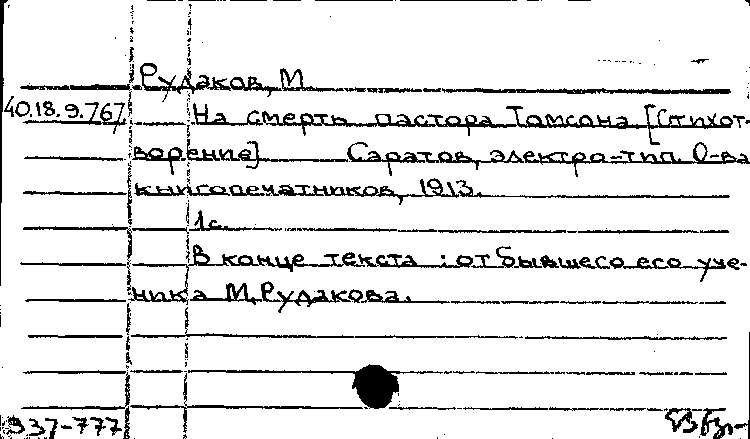 Рудаков, М
40.18.9.767 На смерть пастора Томсона [Стихот-
ворение] Саратов, электро=тип. О-ва
книгопечатников, 1913.
1с.
В конце текста : от бывшего его уче-
ника М. Рудакова.
937-777